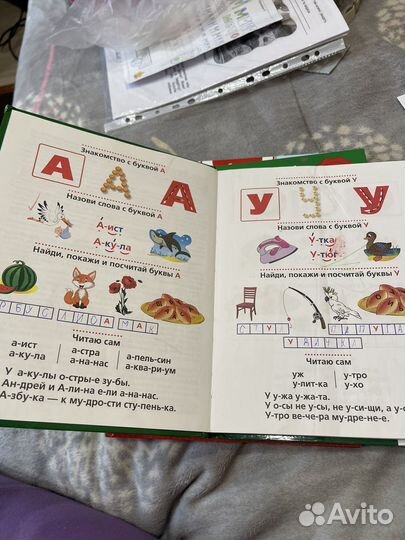 Знакомство с буквой А
А А А
Назови слова с буквой А
А-ист
А-ку-ла
Найди, покажи и посчитай буквы А
РБУС ЛИСА МАК
Читаю сам
а-ист а-стра а-пель-син
а-ку-ла а-на-нас а-ква-ри-ум
У а-ку-лы о-стры-е зу-бы.
Ан-дрей и А-ли-на е-ли а-на-нас.
А-збу-ка — к му-дро-сти сту-пень-ка.
Знакомство с буквой У
У У У
Назови слова с буквой У
У-тка
У-тюг
Найди, покажи и посчитай буквы У
Читаю сам
уж у-тро
у-лит-ка у-хо
У у-жа у-жа-та.
У о-сы не у-сы, не у-си-щи, а у-
У-тро ве-че-ра му-дре-не-е.
Avito